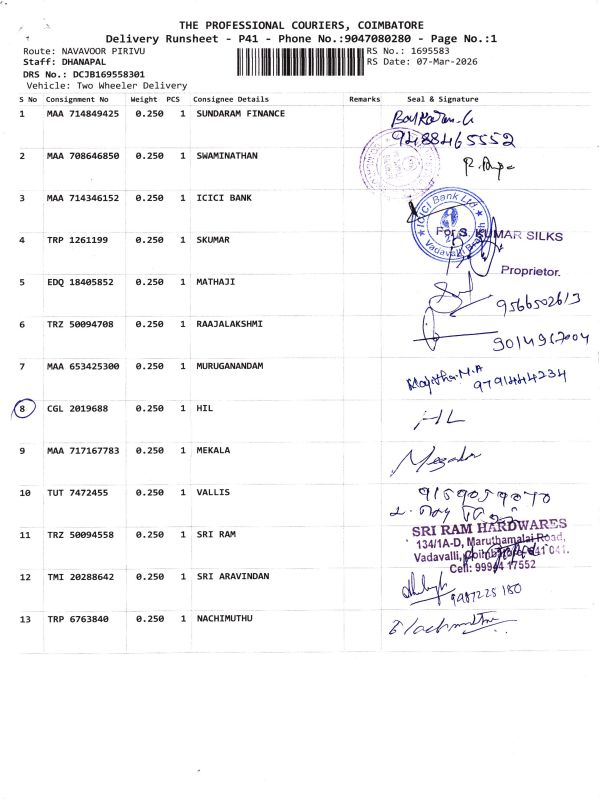 THE PROFESSIONAL COURIERS, COIMBATORE
Delivery Runsheet - P41 - Phone No.:9047080280 - Page No.:1
Route: NAVAVOOR PIRIVU
RS No.: 1695583
Staff: DHANAPAL
RS Date: 07-Mar-2026
DRS No.: DCJB169558301
Vehicle: Two Wheeler Delivery
S No Consignment No Weight PCS Consignee Details Remarks Seal & Signature
1 MAA 714849425 0.250 1 SUNDARAM FINANCE
9488465552
2 MAA 708646850 0.250 1 SWAMINATHAN
3 MAA 714346152 0.250 1 ICICI BANK
ICICI Bank Ltd
Vadavalli
4 TRP 1261199 0.250 1 SKUMAR
For S. KUMAR SILKS
Proprietor.
5 EDQ 18405852 0.250 1 MATHAJI
9566502613
6 TRZ 50094708 0.250 1 RAAJALAKSHMI
7 MAA 653425300 0.250 1 MURUGANANDAM
9791444234
8 CGL 2019688 0.250 1 HIL
HL
9 MAA 717167783 0.250 1 MEKALA
10 TUT 7472455 0.250 1 VALLIS
9159059070
11 TRZ 50094558 0.250 1 SRI RAM
SRI RAM HARDWARES
134/1A-D, Maruthamalai Road,
Vadavalli, Coimbatore-641 041.
Cell: 99944 17552
12 TMI 20288642 0.250 1 SRI ARAVINDAN
9987225180
13 TRP 6763840 0.250 1 NACHIMUTHU